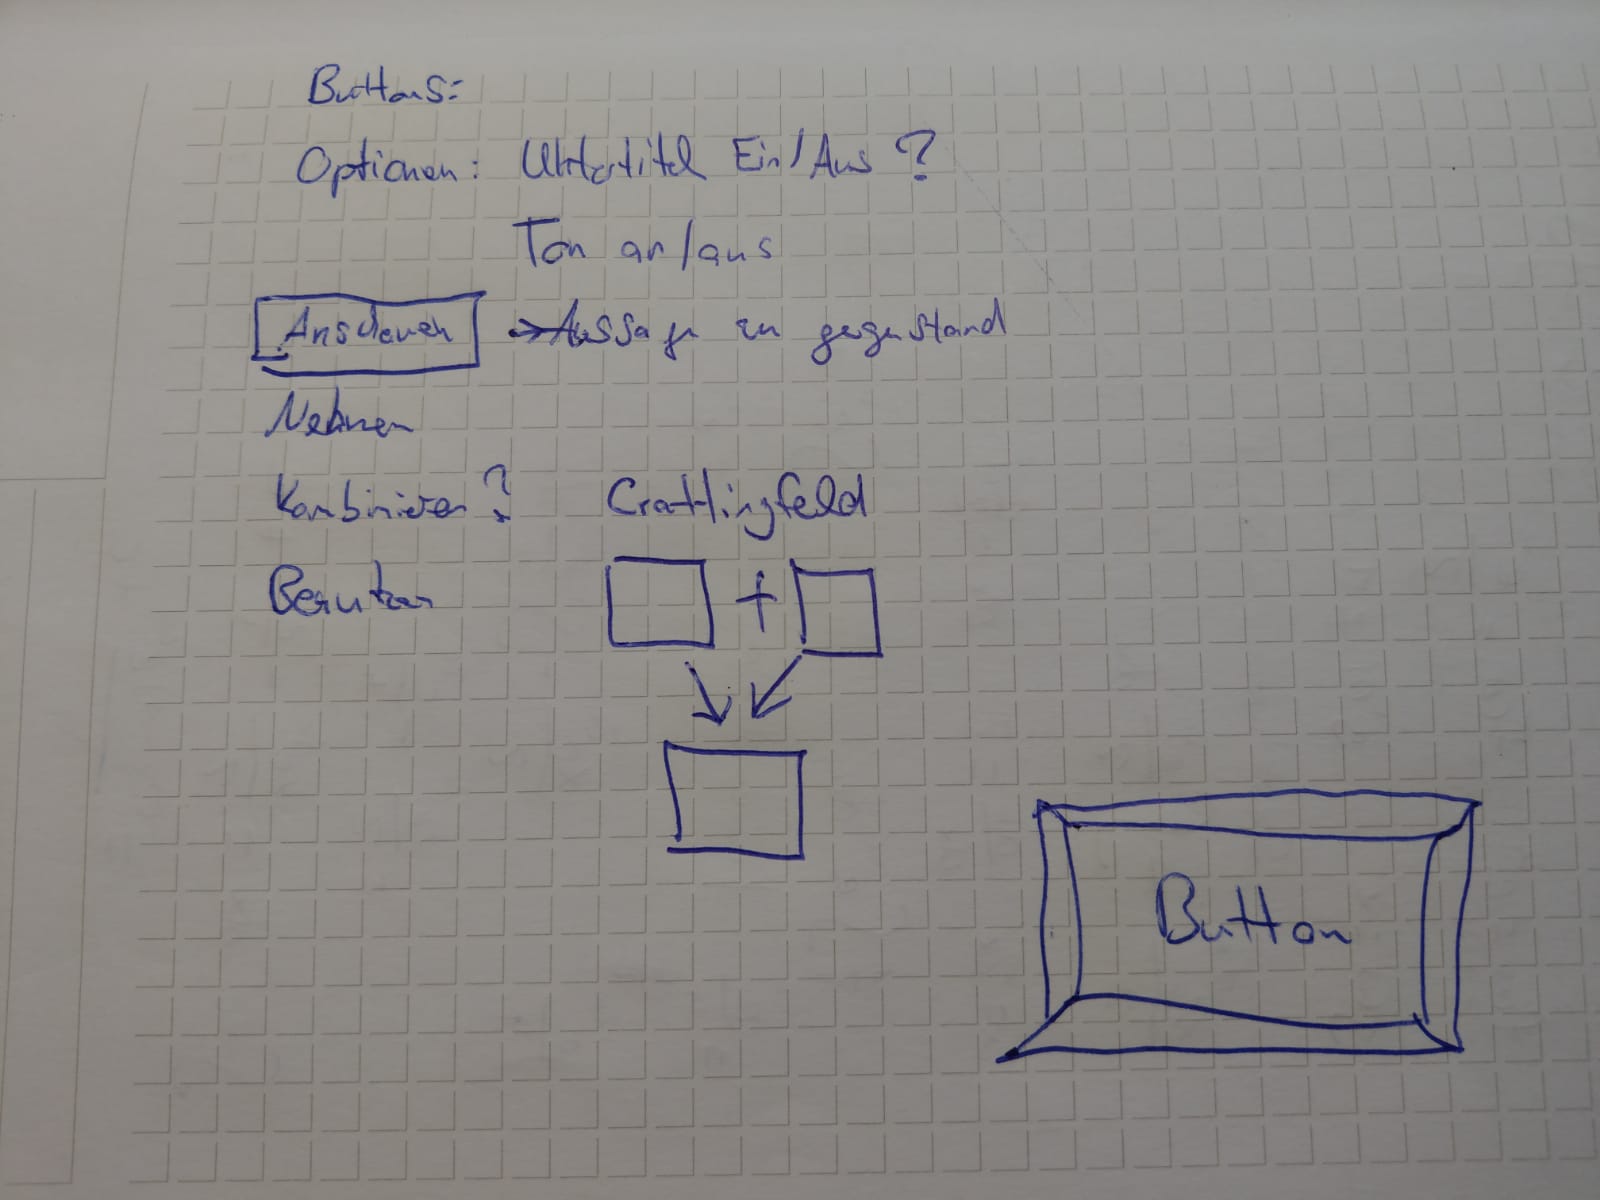 Buttons:
Optionen: Untertitel Ein/Aus?
Ton an/aus
Anschauen → Aussage zu gegenstand
Nehmen
Kombinieren? Craftingfeld
Benutzen
+
Button